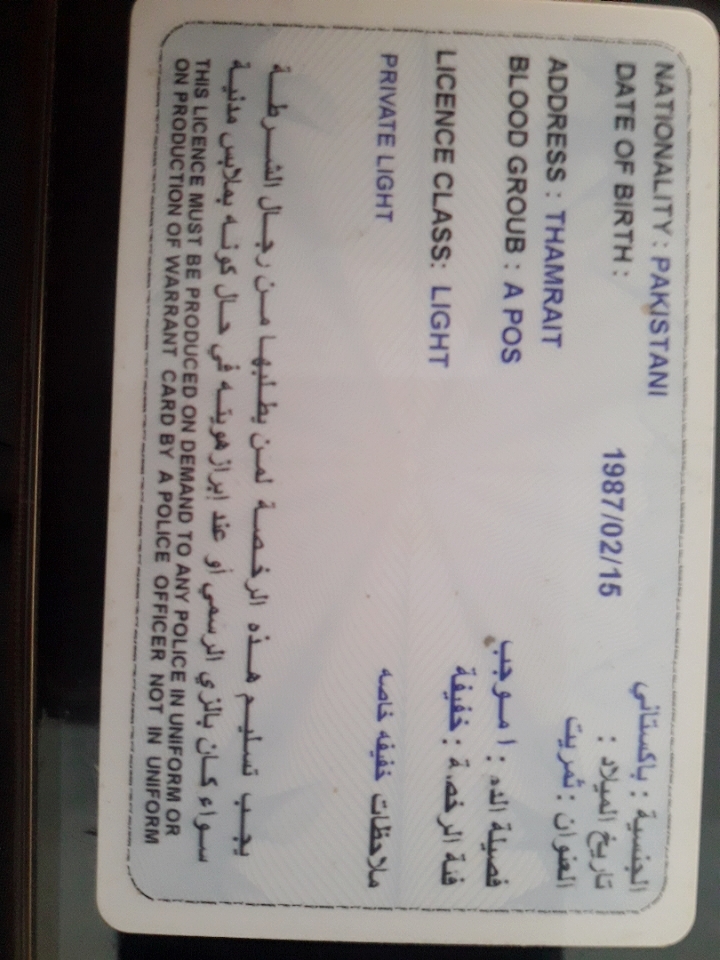 NATIONALITY : PAKISTANI الجنسية : باكستاني
DATE OF BIRTH : 1987/02/15 تاريخ الميلاد :
ADDRESS : THAMRAIT العنوان : ثمريت
BLOOD GROUB : A POS فصيلة الدم : ا موجب
LICENCE CLASS: LIGHT فئة الرخصة : خفيفة
PRIVATE LIGHT ملاحظات خفيفه خاصه
يجب تسليم هذه الرخصة لمن يطلبها من رجال الشرطة
سواء كان بالزي الرسمي أو عند إبراز هويته في حال كونه بملابس مدنية
THIS LICENCE MUST BE PRODUCED ON DEMAND TO ANY POLICE IN UNIFORM OR
ON PRODUCTION OF WARRANT CARD BY A POLICE OFFICER NOT IN UNIFORM